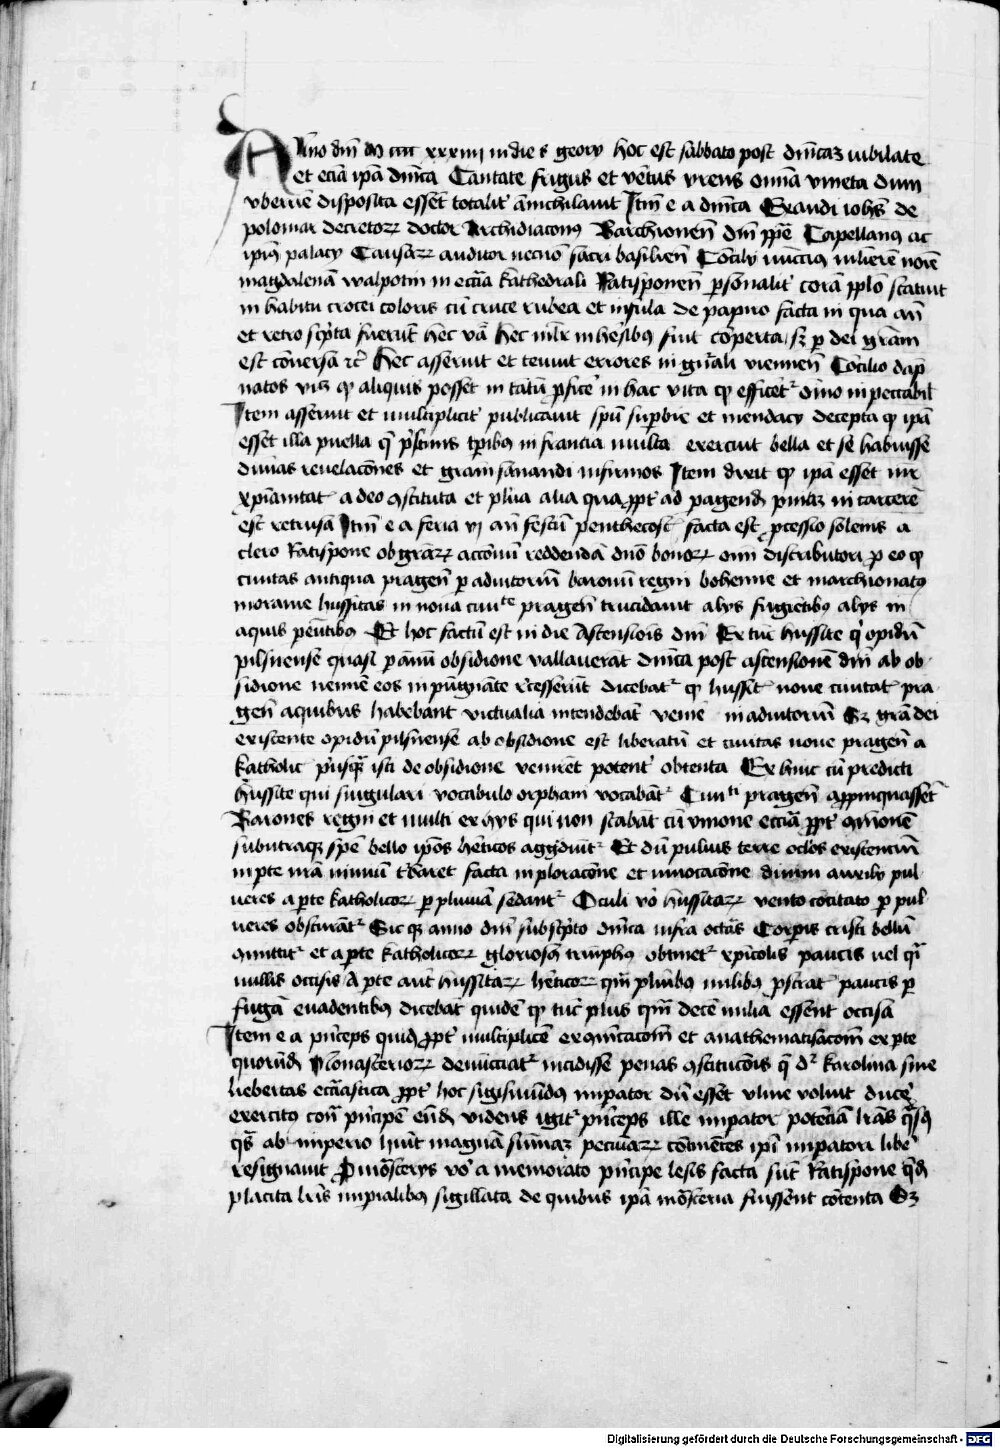 Anno dm̄ M cccc xxxiiij in die s georij hoc est sabbato post dm̄cam iubilate
et eciā ipā dm̄ca Cantate frigus et ventus vrens omnia vineta dum
vberrime disposita essent totalit̄ annichilavit Itm̄ e a dm̄ca Exaudi ioh̄es de
polomar decretoꝝ doctor Archidiaconus Barchionen̄ dm̄ pp̄e Capellanus ac
ipiꝰ palacij Causaꝝ auditor necnō sacri basilien̄ Cōcilij nunctius mulierē noīe
magdalenam walpotin in ecc̄ia kathedrali Ratisponen̄ p̄sonalit̄ corā pplō statuit
in habitu crocei coloris cū cruce rubea et insula de papiro facta in qua an̄
et retro scp̄ta fuerūt hec v̄ba hec ml̄r in h̄esibꝰ fuit cōperta sꝫ p dei grām
est cōversa rc̄ Hec asseruit et tenuit errores in gn̄ali viennen̄ Cōcilio dāp
natos viꝫ qꝫ aliquis posset in tātū p̄fice in hac vita qꝫ efficet̄ oīno inpeccabil̄
Item asseruit et multiplicit̄ publicauit spū sup̄bie et mendacij decepta qꝫ ipā
esset illa puella q̄ p̄ximis tp̄ibꝰ in francia multa exercuit bella et se habuisse
diuinas reuelac̄ones et grām sanandi infirmos Item dixit qꝫ ipā esset mr̄
xp̄ianitat̄ a deo ꝯstituta et plura alia quapp̄t ad pagend̄ pn̄iaꝫ in carcerē
est retrusa Itm̄ e a feria vi an̄ festū penthecost̄ facta est pcessio solemis a
clero Ratispone ob graꝝ acc̄onū reddendā dn̄o bonoꝝ om̄ distributori p eo qꝫ
ciuitas antiqua pragen̄ p adiutoriū baronū regni bohemie et marchionatꝰ
morauie hussitas in noua ciui^te pragen̄ trucidauit alijs fugientibꝰ alijs in
aquis peūtibꝰ Et hoc factū est in die Ascensiōis dm̄ Ex tūc hussite qͥ opidū
pilsnense quasi p annū obsidione vallauerāt dm̄ca post ascensionē dm̄ ab ob
sidione nemine eos inpūgnāte recesserūt dicebat̄ qꝫ hussit̄ noue ciuitat̄ pra
gen̄ aquibus habebant victualia intendebāt venire in adiutoriū Sꝫ grā dei
existente opidū pilsnense ab obsidione est liberatū et ciuitas noue pragen̄ a
katholic̄ p̄usqꝫ isti de obsidione venirēt potent̄ obtenta Ex hinc cū predicti
hussite qui singulari vocabulo orphani vocabāt̄ Ciui^ti pragen̄ appinquassēt
Barones regni et multi ex hijs qui non stabāt cū vnione ecc̄ie ppt̄ ꝯm̄ionē
subutraqꝫ spē bello ip̄os h̄eticos aggdiūt̄ Et dū puluis terre oclos existenciū
in pte nrā nimiū t̄baret facta inploracōne et inuocacōne diuini auxilij pul
ueres a pte katholicoꝝ p pluuiā sedant̄ Oculi vō hussitaꝝ vento cōcitato p pul
ueres obscurāt̄ Sicqꝫ anno dm̄ subscp̄to dm̄ca infra octās Corpis cristi bellū
ꝯmittit̄ et a pte katholicoꝝ gloriosꝰ triūphꝰ obtinet̄ xp̄icolis paucis uel qͣ
nullis occisis A pte aūt hussitaꝝ h̄eticoꝝ qm̄ plurībꝰ milibꝰ pstrat̄ paucis p
fugā euadentibꝰ dicebāt quidē qꝫ tūc plus qm̄ decē milia essent occisa
Item e a pn̄ceps quidā ppt̄ multiplicē exꝯm̄icacōm et anathematisacōm ex pte
quorūd̄ Monasterioꝝ denūcciat̄ incidisse penas ꝯstitucōis q̄ dr̄ karolina siue
liebertas ecc̄iastica ppt̄ hoc sigismūdꝰ impator dū esset vlme voluit ducē
exercitū cont̄ p̄ncipē eūd̄ videns igit̄ p̄nceps ille impator potenciā lr̄as
qͣs ab imperio hūit magnā sūmaꝫ pecuniaꝝ cōtinētes ipī impatori libe
resignauit Pmōsterijs vō a memorato p̄ncipe lesis facta sūt Ratispone qͣd̄
placita lr̄is impialibꝰ sigillata de quibus ipā mōsteria fuissent cōtenta Sꝫ
Digitalisierung gefördert durch die Deutsche Forschungsgemeinschaft - DFG